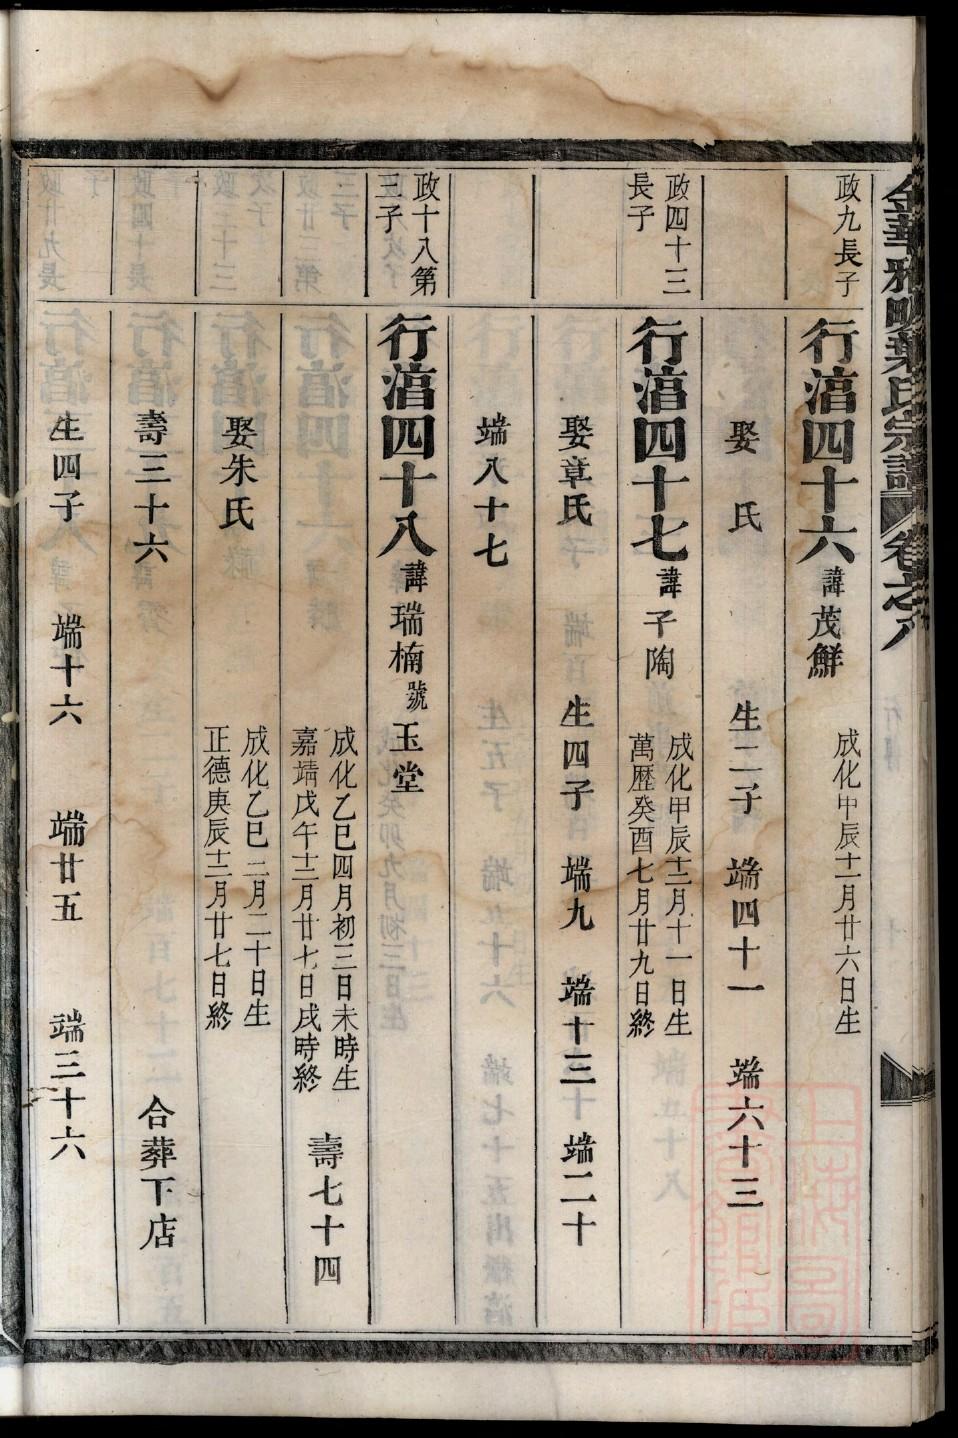 金華雅畈葉氏宗譜 卷之八
政九長子
行湻四十六 諱茂鮮
成化甲辰十一月廿六日生
娶 氏 生二子 端四十一 端六十三
政四十三
長子
行湻四十七 諱子陶
成化甲辰十二月十一日生
萬歷癸酉七月廿九日終
娶章氏 生四子 端九 端十三 端二十
端八十七
政十八第
三子
行湻四十八 諱瑞楠 號玉堂
成化乙巳四月初三日未時生
嘉靖戊午十二月廿七日戌時終
壽七十四
娶朱氏
成化乙巳二月二十日生
正德庚辰十二月廿七日終
壽三十六 合葬下店
生四子 端十六 端廿五 端三十六